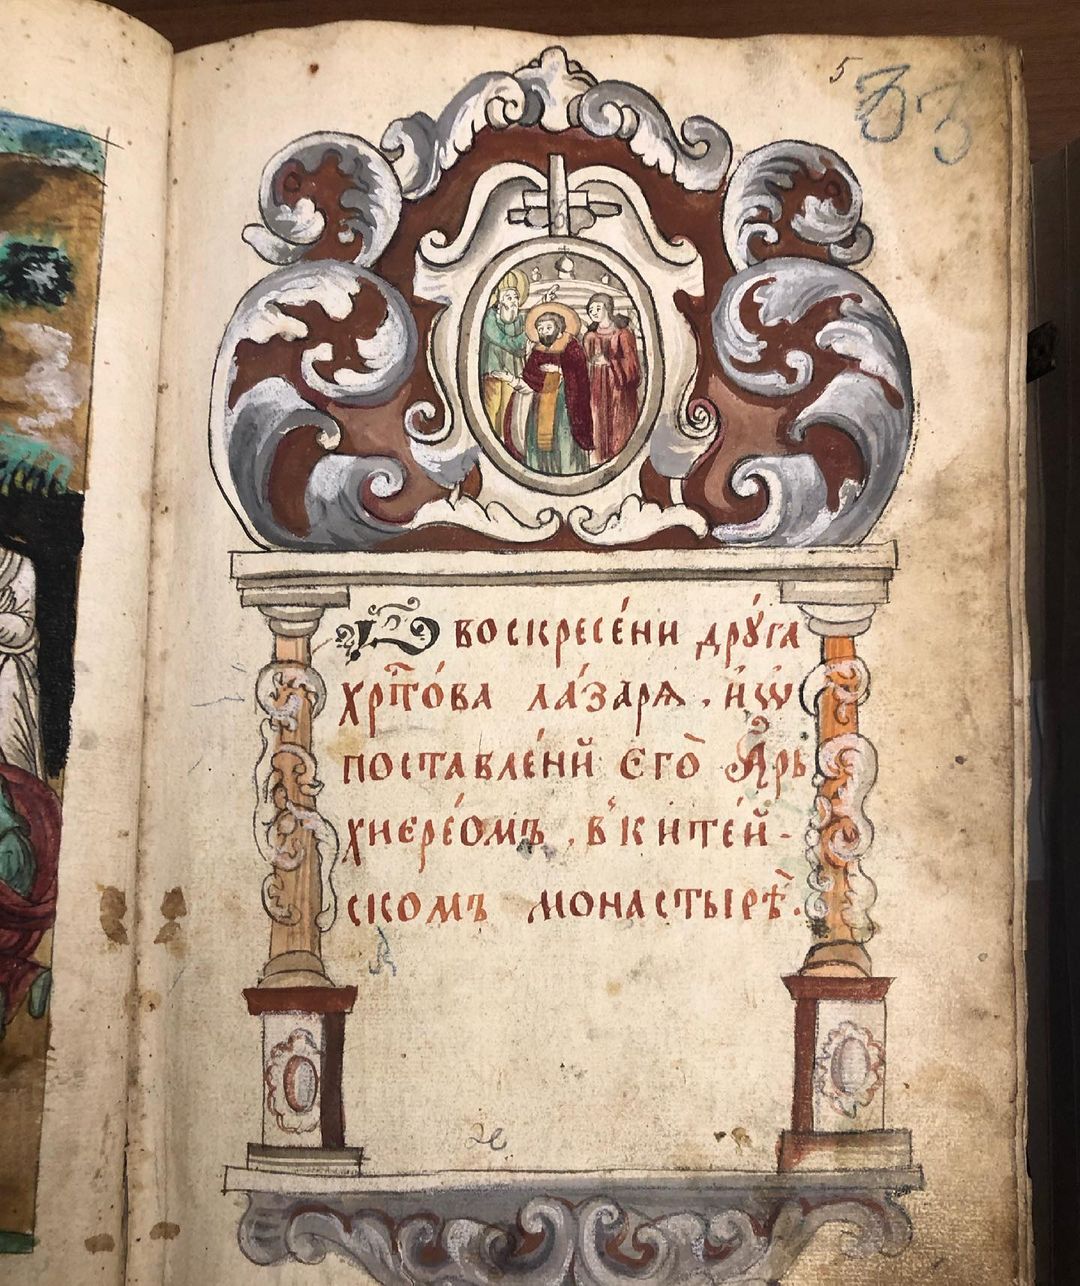 5
33
Ѡ воскресе́ни дрꙋ́га
хрⷭ҇то́ва ла́заря, и҆ ѡ҆
поставле́нїй єго̀ Арь
хиєре́омъ, в̾ китей-
скомъ монастырѣ̀.